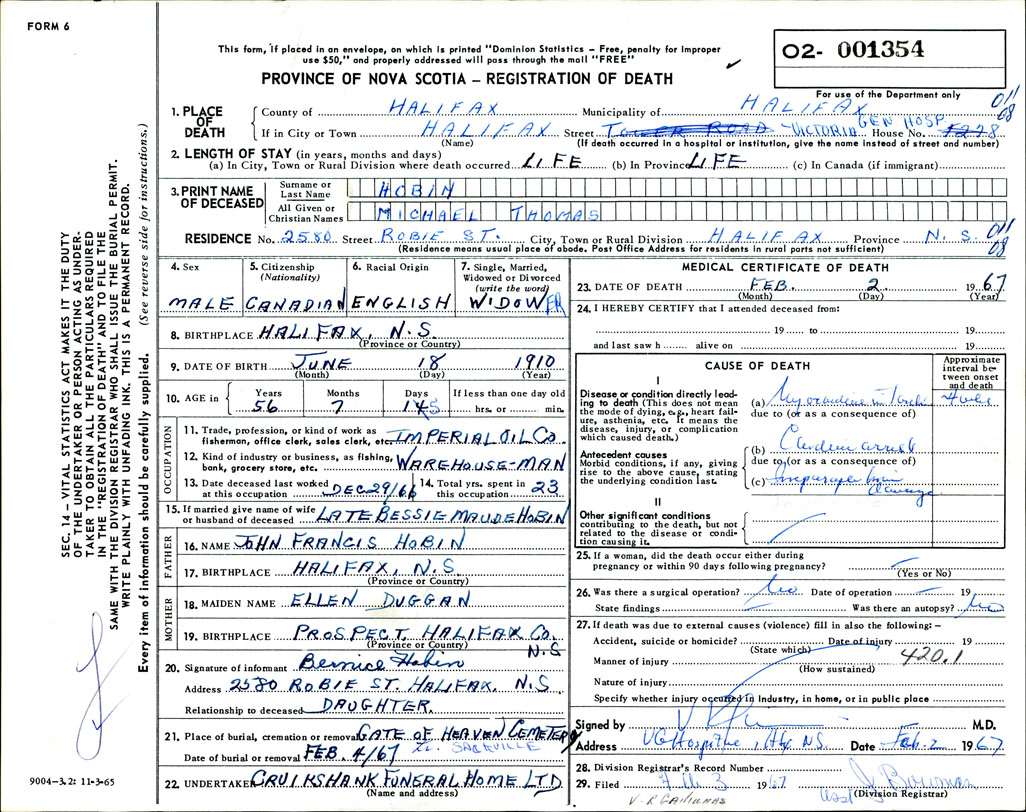 FORM 6
This form, if placed in an envelope, on which is printed "Dominion Statistics – Free, penalty for improper
use $50," and properly addressed will pass through the mail "FREE"
O2- 001354
PROVINCE OF NOVA SCOTIA – REGISTRATION OF DEATH
For use of the Department only
011
08
1. PLACE OF DEATH
County of HALIFAX Municipality of HALIFAX
If in City or Town HALIFAX Street TOWER ROAD VICTORIA GEN HOSP House No. 1278
(Name) (If death occurred in a hospital or institution, give the name instead of street and number)
2. LENGTH OF STAY (in years, months and days)
(a) In City, Town or Rural Division where death occurred LIFE (b) In Province LIFE (c) In Canada (if immigrant)
3. PRINT NAME OF DECEASED
Surname or Last Name HOBIN
All Given or Christian Names MICHAEL THOMAS
011
08
RESIDENCE No. 2580 Street ROBIE ST. City, Town or Rural Division HALIFAX Province N.S.
(Residence means usual place of abode. Post Office Address for residents in rural parts not sufficient)
4. Sex MALE
5. Citizenship (Nationality) CANADIAN
6. Racial Origin ENGLISH
7. Single, Married, Widowed or Divorced (write the word) WIDOWER
8. BIRTHPLACE HALIFAX, N.S.
(Province or County)
9. DATE OF BIRTH JUNE 18 1910
(Month) (Day) (Year)
10. AGE in Years 56 Months 7 Days 15 If less than one day old
hrs. or min.
OCCUPATION
11. Trade, profession, or kind of work as
fisherman, office clerk, sales clerk, etc. IMPERIAL OIL CO.
12. Kind of industry or business, as fishing,
bank, grocery store, etc. WAREHOUSE-MAN
13. Date deceased last worked
at this occupation DEC 29/66
14. Total yrs. spent in
this occupation 23
15. If married give name of wife
or husband of deceased LATE BESSIE MAUDE HOBIN
FATHER
16. NAME JOHN FRANCIS HOBIN
17. BIRTHPLACE HALIFAX, N.S.
(Province or County)
MOTHER
18. MAIDEN NAME ELLEN DUGGAN
19. BIRTHPLACE PROSPECT, HALIFAX CO.
(Province or County) N.S
20. Signature of informant Bernice Hobin
Address 2580 ROBIE ST. HALIFAX, N.S
Relationship to deceased DAUGHTER.
21. Place of burial, cremation or removal GATE OF HEAVEN CEMETERY
Date of burial or removal FEB. 4/67 SACKVILLE
22. UNDERTAKER CRUIKSHANK FUNERAL HOME LTD
(Name and address)
MEDICAL CERTIFICATE OF DEATH
23. DATE OF DEATH FEB. 2 1967
(Month) (Day) (Year)
24. I HEREBY CERTIFY that I attended deceased from:
19 to 19
and last saw h alive on 19
CAUSE OF DEATH
Approximate interval between onset and death
I
Disease or condition directly leading to death (This does not mean
the mode of dying, e.g., heart failure, asthenia, etc. It means the
disease, injury, or complication
which caused death.)
(a)
due to (or as a consequence of)
(b) Cardiac arrest
Antecedent causes
Morbid conditions, if any, giving
rise to the above cause, stating
the underlying condition last.
due to (or as a consequence of)
(c)
II
Other significant conditions
contributing to the death, but not
related to the disease or condition causing it.
25. If a woman, did the death occur either during
pregnancy or within 90 days following pregnancy?
(Yes or No)
26. Was there a surgical operation? No Date of operation 19
State findings Was there an autopsy? No
27. If death was due to external causes (violence) fill in also the following: –
Accident, suicide or homicide? Date of injury 19
(State which)
Manner of injury 420.1
(How sustained)
Nature of injury
Specify whether injury occurred in industry, in home, or in public place
Signed by M.D.
Address VG Hospital, Hfx N.S. Date Feb. 2 1967
28. Division Registrar's Record Number
29. Filed Feb 3 1967
(Division Registrar)
SEC. 14 – VITAL STATISTICS ACT MAKES IT THE DUTY
OF THE UNDERTAKER OR PERSON ACTING AS UNDER-
TAKER TO OBTAIN ALL THE PARTICULARS REQUIRED
IN THE "REGISTRATION OF DEATH" AND TO FILE THE
SAME WITH THE DIVISION REGISTRAR WHO SHALL ISSUE THE BURIAL PERMIT.
WRITE PLAINLY WITH UNFADING INK. THIS IS A PERMANENT RECORD.
Every item of information should be carefully supplied. (See reverse side for instructions.)
9004-3.2: 11-3-65